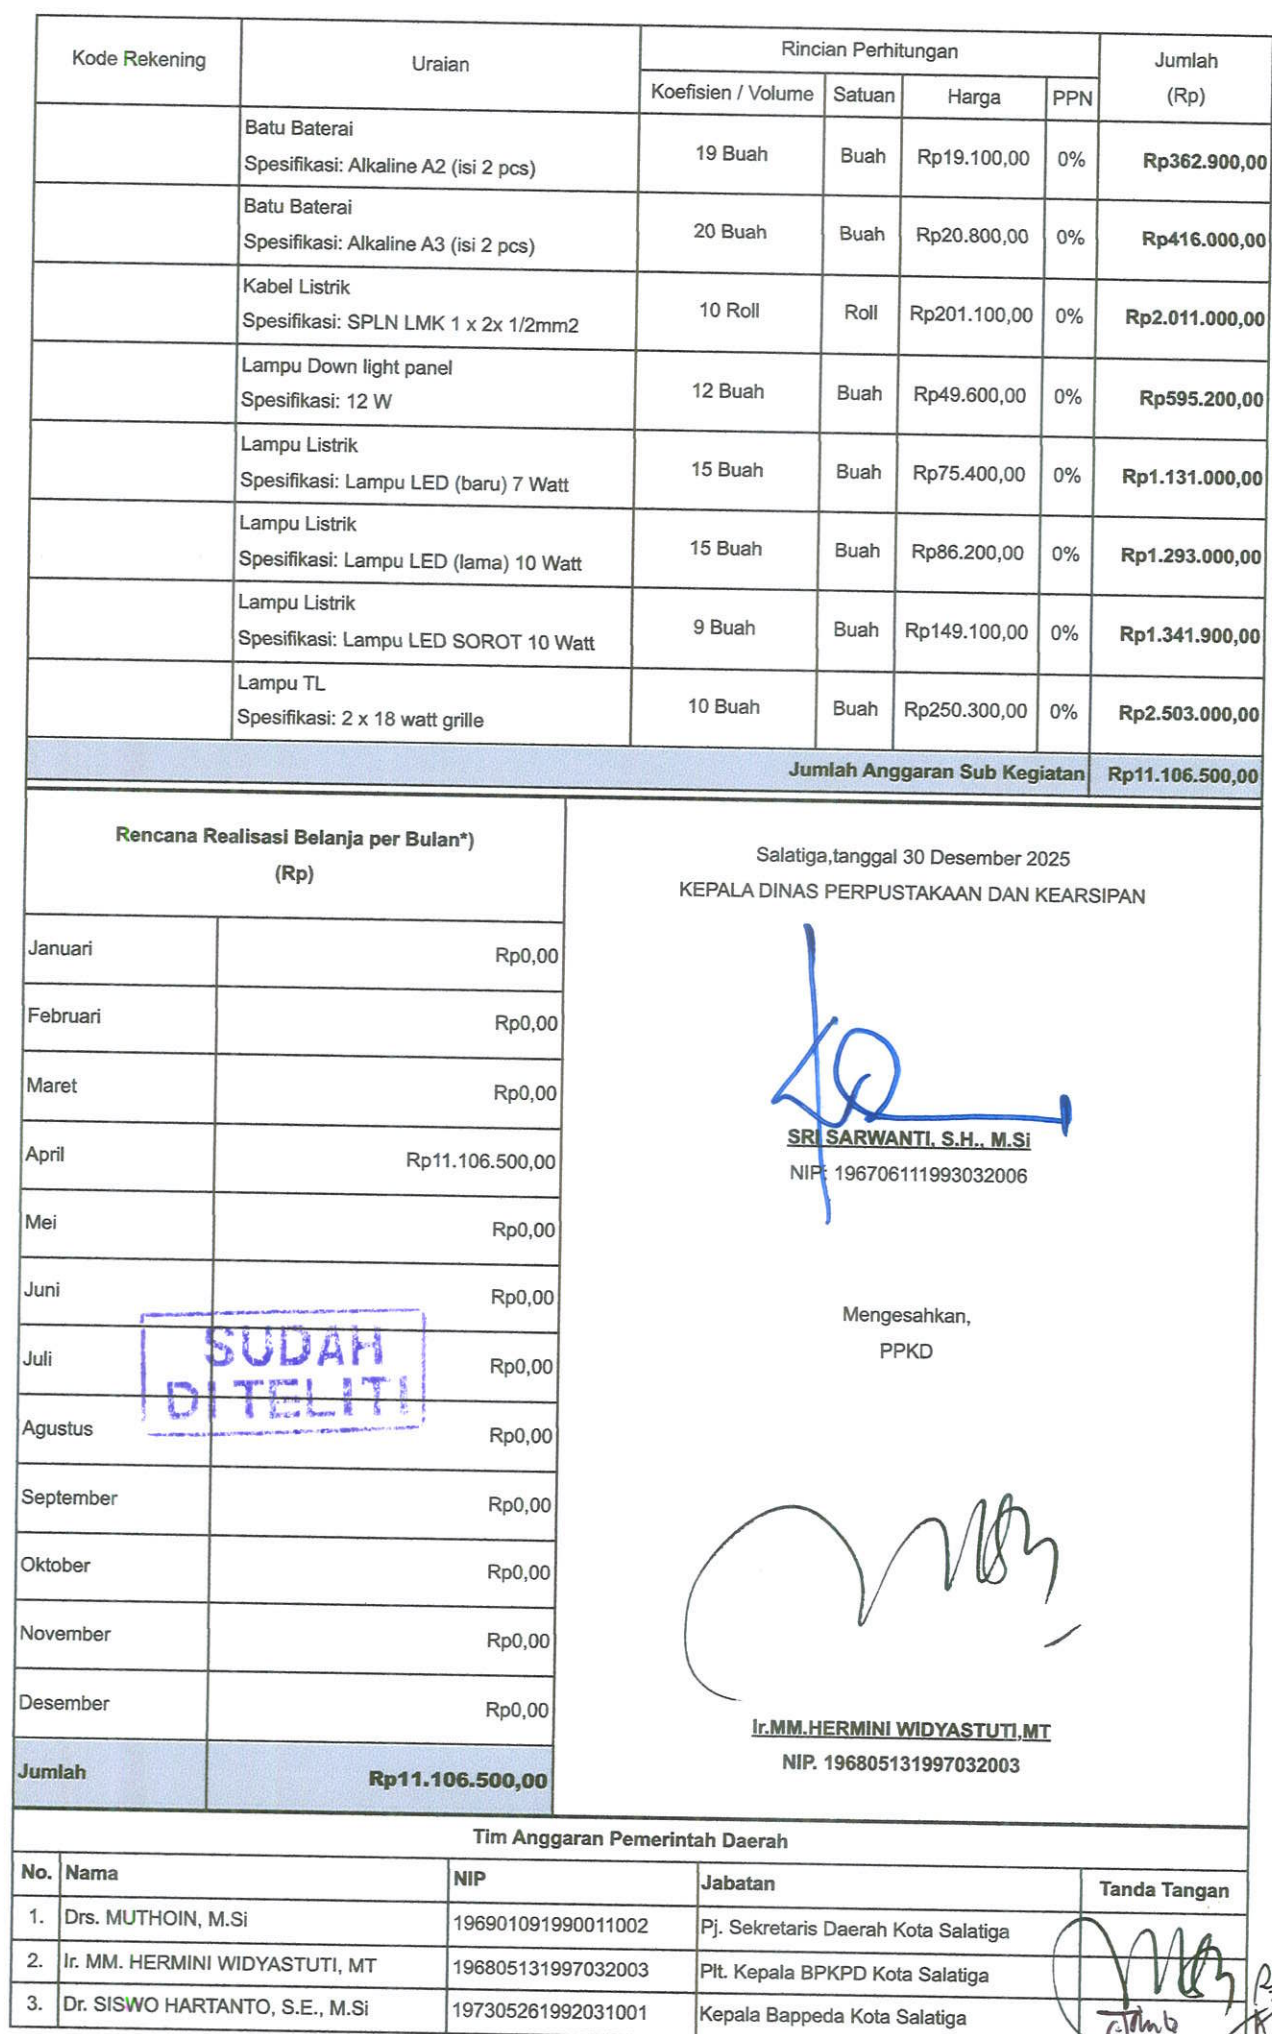 Kode Rekening Uraian Rincian Perhitungan Jumlah (Rp)
Koefisien / Volume Satuan Harga PPN
Batu Baterai
Spesifikasi: Alkaline A2 (isi 2 pcs) 19 Buah Buah Rp19.100,00 0% Rp362.900,00
Batu Baterai
Spesifikasi: Alkaline A3 (isi 2 pcs) 20 Buah Buah Rp20.800,00 0% Rp416.000,00
Kabel Listrik
Spesifikasi: SPLN LMK 1 x 2x 1/2mm2 10 Roll Roll Rp201.100,00 0% Rp2.011.000,00
Lampu Down light panel
Spesifikasi: 12 W 12 Buah Buah Rp49.600,00 0% Rp595.200,00
Lampu Listrik
Spesifikasi: Lampu LED (baru) 7 Watt 15 Buah Buah Rp75.400,00 0% Rp1.131.000,00
Lampu Listrik
Spesifikasi: Lampu LED (lama) 10 Watt 15 Buah Buah Rp86.200,00 0% Rp1.293.000,00
Lampu Listrik
Spesifikasi: Lampu LED SOROT 10 Watt 9 Buah Buah Rp149.100,00 0% Rp1.341.900,00
Lampu TL
Spesifikasi: 2 x 18 watt grille 10 Buah Buah Rp250.300,00 0% Rp2.503.000,00
Jumlah Anggaran Sub Kegiatan Rp11.106.500,00
Rencana Realisasi Belanja per Bulan*)
(Rp)
Januari Rp0,00
Februari Rp0,00
Maret Rp0,00
April Rp11.106.500,00
Mei Rp0,00
Juni Rp0,00
Juli Rp0,00
Agustus Rp0,00
September Rp0,00
Oktober Rp0,00
November Rp0,00
Desember Rp0,00
Jumlah Rp11.106.500,00
SUDAH
DI TELITI
Salatiga,tanggal 30 Desember 2025
KEPALA DINAS PERPUSTAKAAN DAN KEARSIPAN
SRI SARWANTI, S.H., M.Si
NIP: 196706111993032006
Mengesahkan,
PPKD
Ir.MM.HERMINI WIDYASTUTI,MT
NIP. 196805131997032003
Tim Anggaran Pemerintah Daerah
No. Nama NIP Jabatan Tanda Tangan
1. Drs. MUTHOIN, M.Si 196901091990011002 Pj. Sekretaris Daerah Kota Salatiga
2. Ir. MM. HERMINI WIDYASTUTI, MT 196805131997032003 Plt. Kepala BPKPD Kota Salatiga
3. Dr. SISWO HARTANTO, S.E., M.Si 197305261992031001 Kepala Bappeda Kota Salatiga